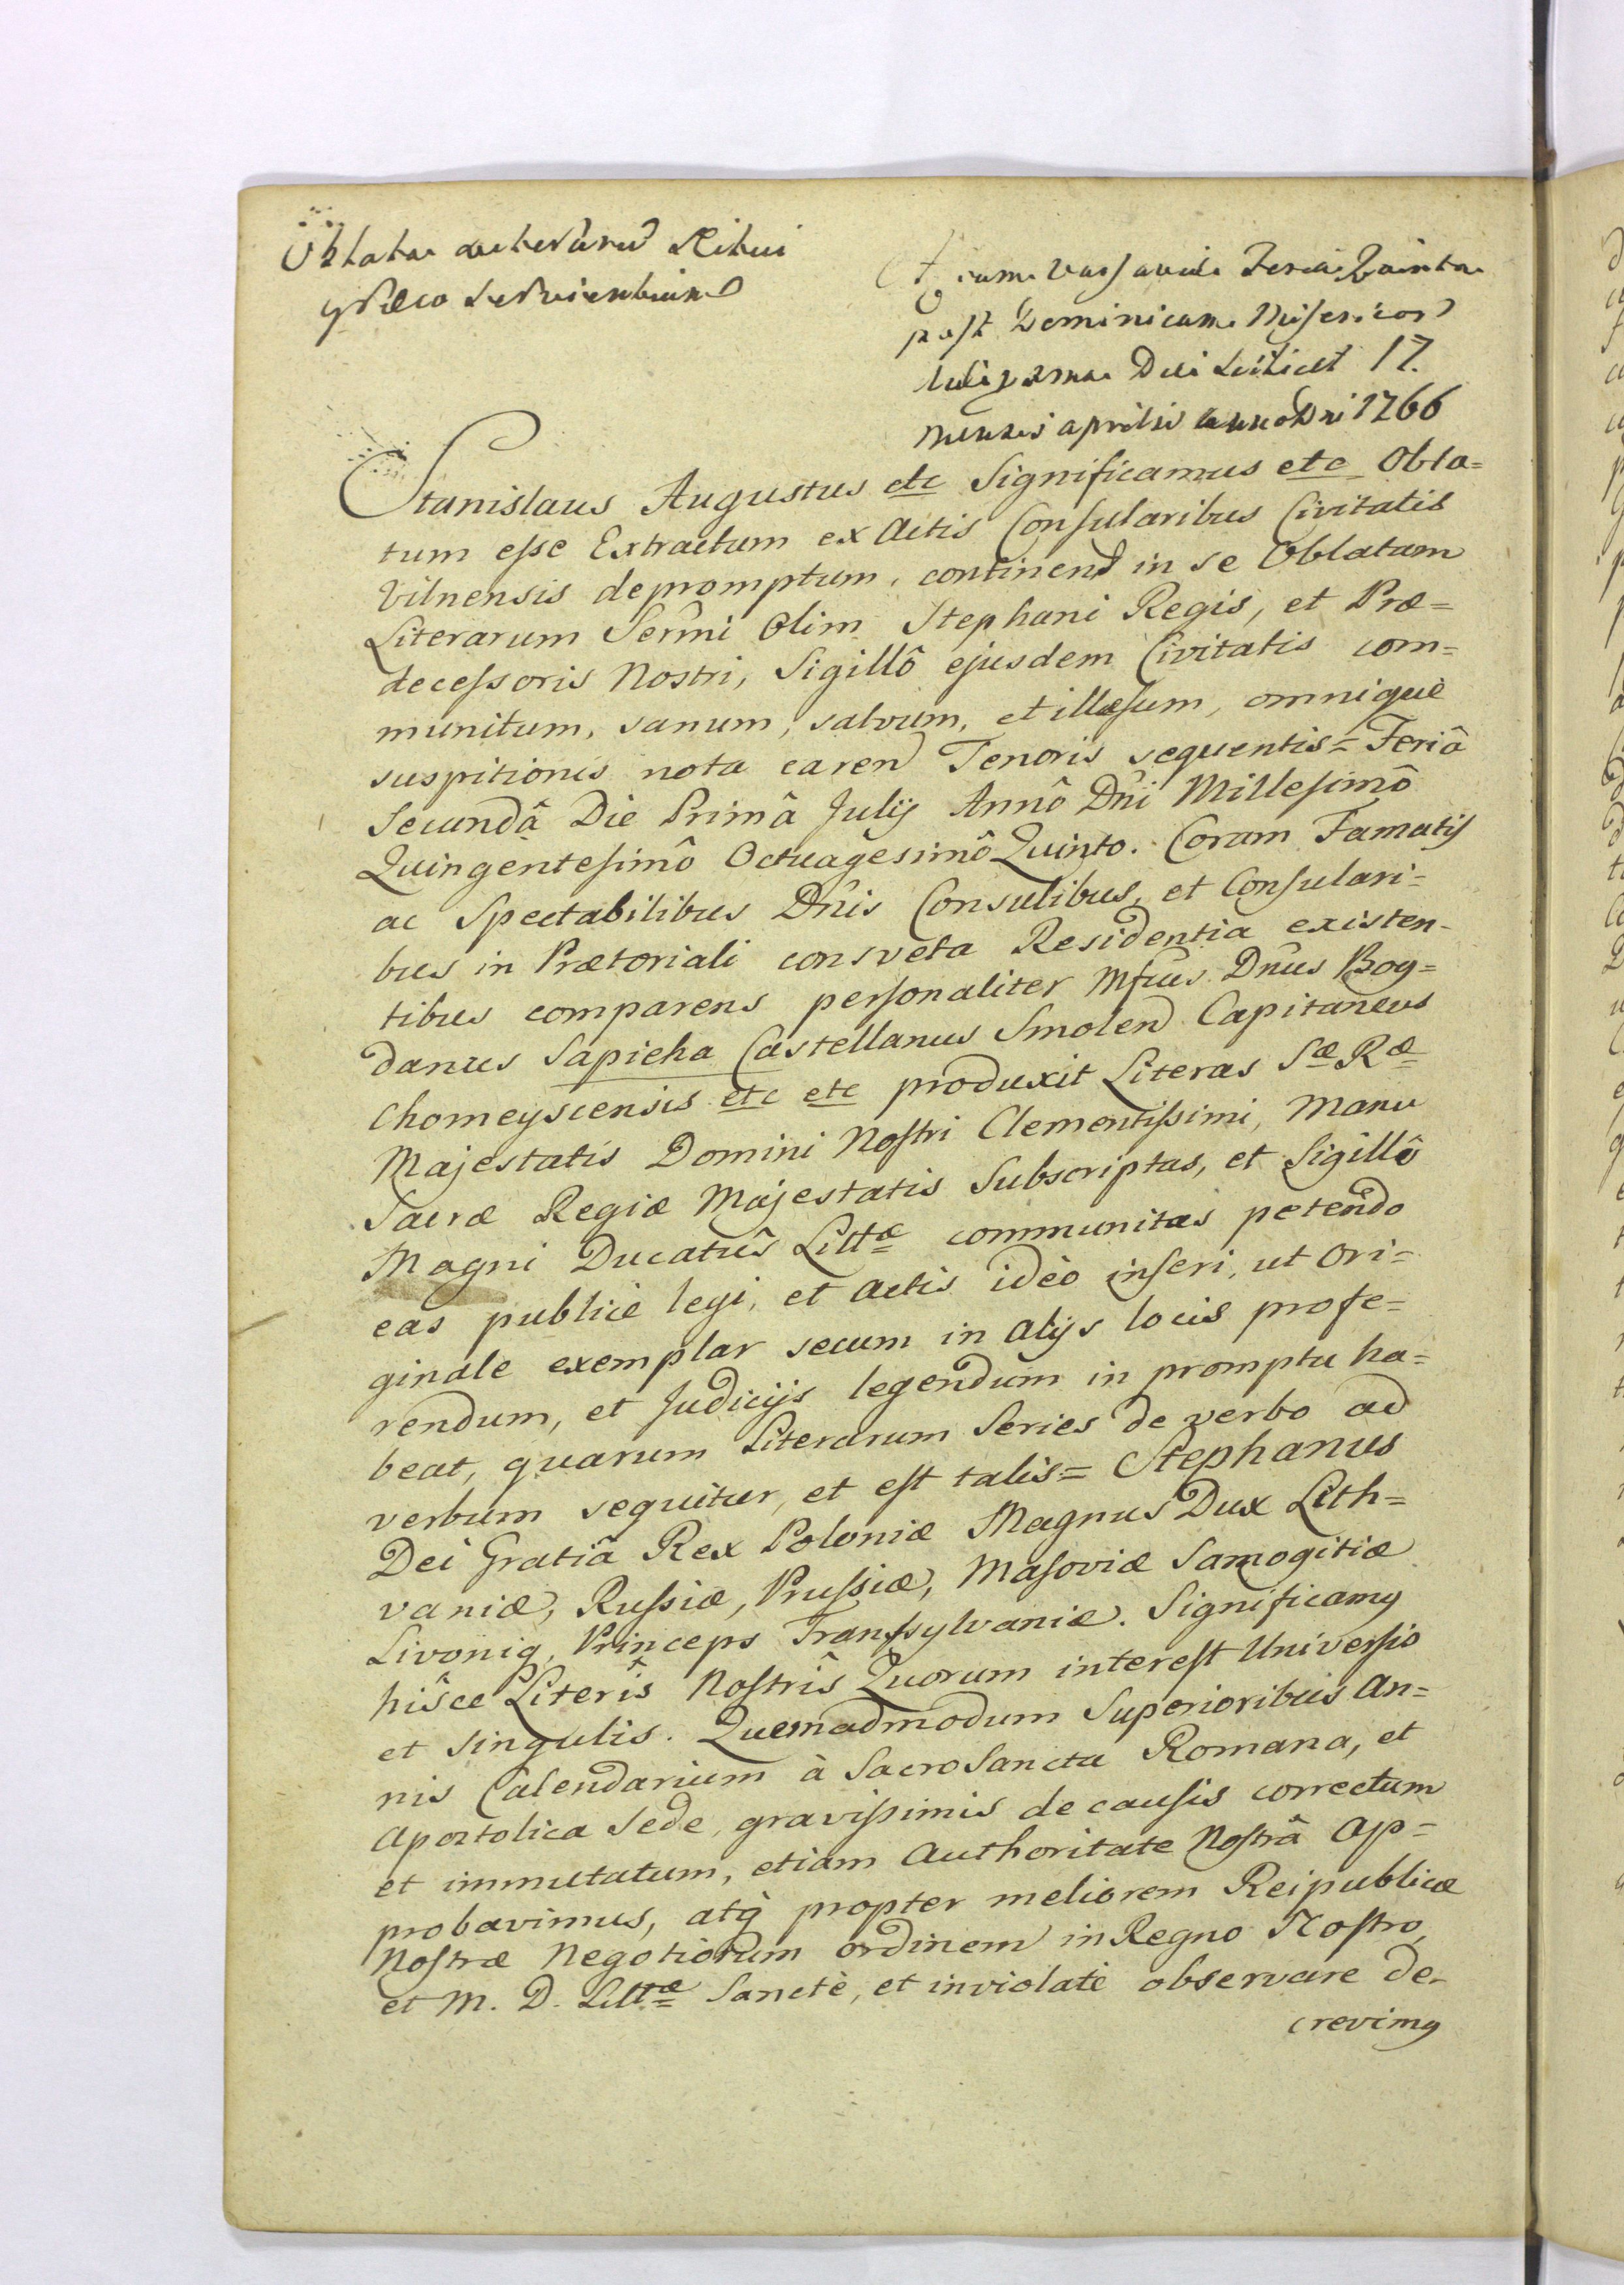 Oblata Literarum Ritui
græco Servientium
Actum Varsaviæ Feria Quinta
post Dominicam Misericor
proxima Die scilicet 17.
mensis aprilis anno Dni 1766
Stanislaus Augustus etc Significamus etc Obla=
tum esse Extractum ex Actis Consularibus Civitatis
Vilnensis depromptum, continend in se Oblatam
Literarum Sermi Olim Stephani Regis, et Præ=
decessoris Nostri, Sigillô ejusdem Civitatis com=
munitum, sanum, salvum, et illæsum, omniquè
suspitionis nota caren Tenoris sequentis = Feriâ
Secundâ Diè Primâ Julij Annô Dni Millesimô
Quingèntesimô Octuagesimô Quinto. Coram Famatis
ac Spectabilibus Dnis Consulibus, et Consulari=
bus in Prætoriali consveta Residentia existen-
tibus comparens personaliter Mfcus Dnus Bog=
danus Sapieha Castellanus Smolen Capitaneus
Chomeyscensis etc etc produxit Literas Sæ Ræ
Majestatis Domini Nostri Clementissimi, Manu
Sacræ Regiæ Majestatis Subscriptas, et Sigillô
Magni Ducatûs Littæ communitas petendo
eas publicè legi, et Actis ideò inseri, ut Ori=
ginale exemplar secum in alijs locis profe=
rendum, et Judicijs legendum in promptu ha=
beat, quarum Literarum Series de verbo ad
verbum sequitur, et est talis = Stephanus
Dei Gratiâ Rex Poloniæ Magnus Dux Lith=
vaniæ, Russiæ, Prussiæ, Masoviæ Samogitiæ
Livoniæ, Princeps Transsylvaniæ. Significamus
hisce Literis Nostris Quorum interest Universis
et singulis. Quemadmodum Superioribus An=
nis Calendarium à SacroSancta Romana, et
Apostolica Sede, gravissimis de causis correctum
et immutatum, etiam Authoritate Nostrâ Ap=
probavimus, atq; propter meliorem Reipublicæ
Nostræ Negotiorum ordinem in Regno Nostro,
et M. D. Littæ Sanctè, et inviolatè observare de-
crevimus